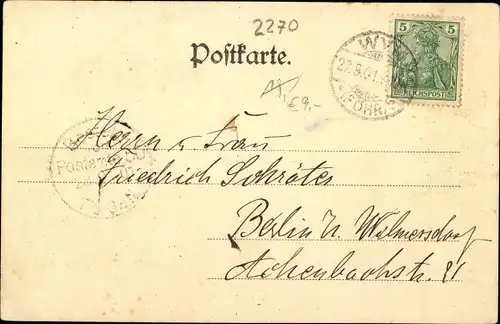 2270
Postkarte.
WY
27.9.01.
FÖHR
5
REICHSPOST
€9,-
Herrn u Frau
Friedrich Schröter
Berlin n. Wilmersdorf
Achenbachstr. 21